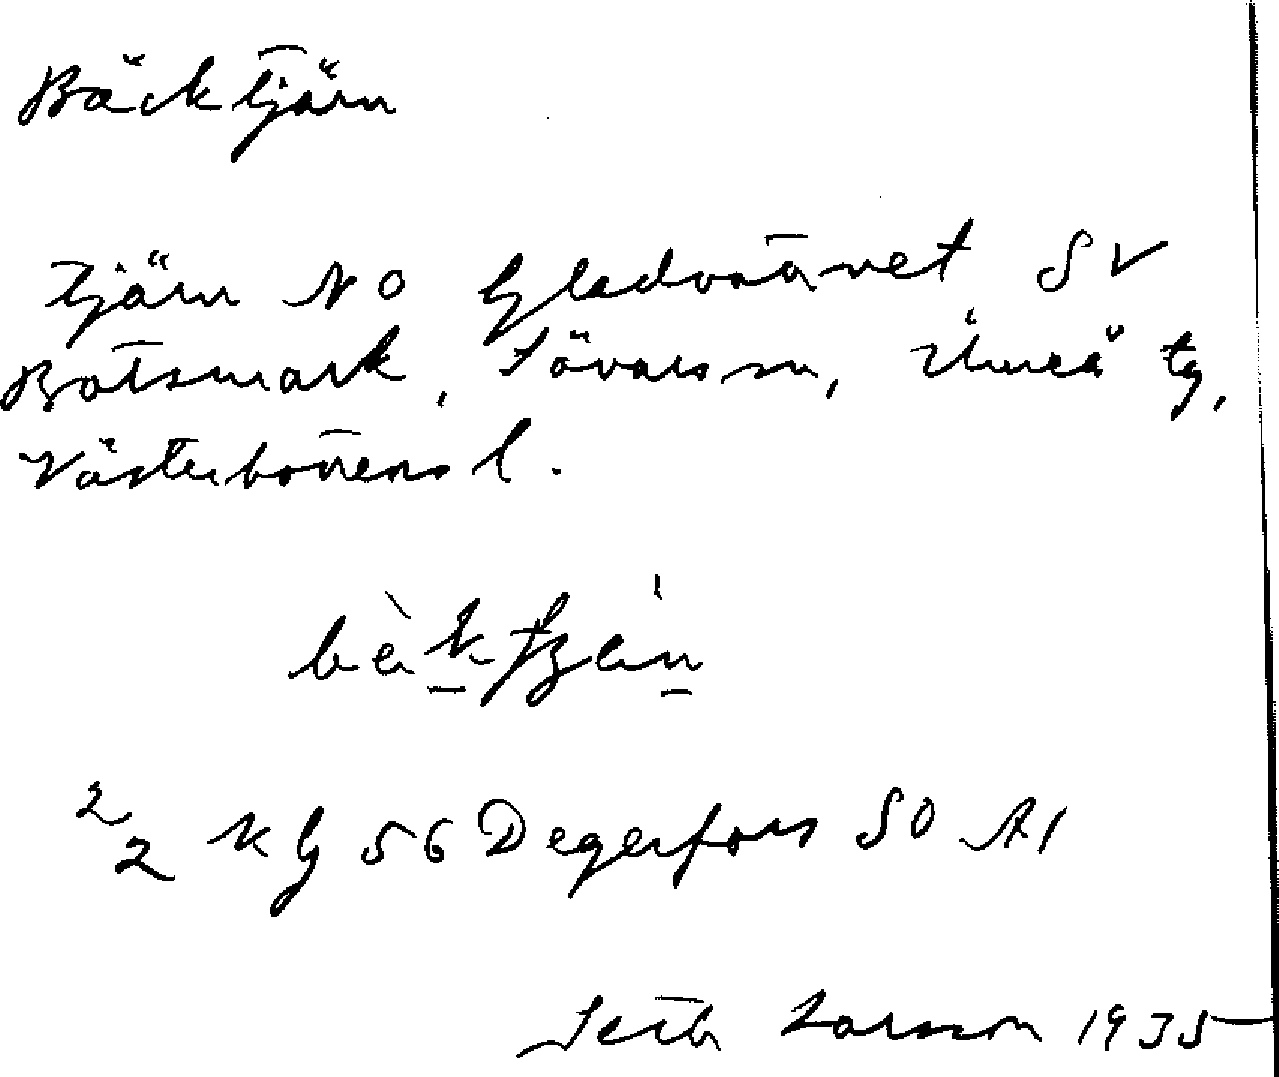 Bäcktjärn
tjärn NO Gladvattnet SV
Botsmark, Sävars sn, Umeå tg,
Västerbottens l.
2/2 KG 56 Degerfors SO A1
Seth Larsson 1935